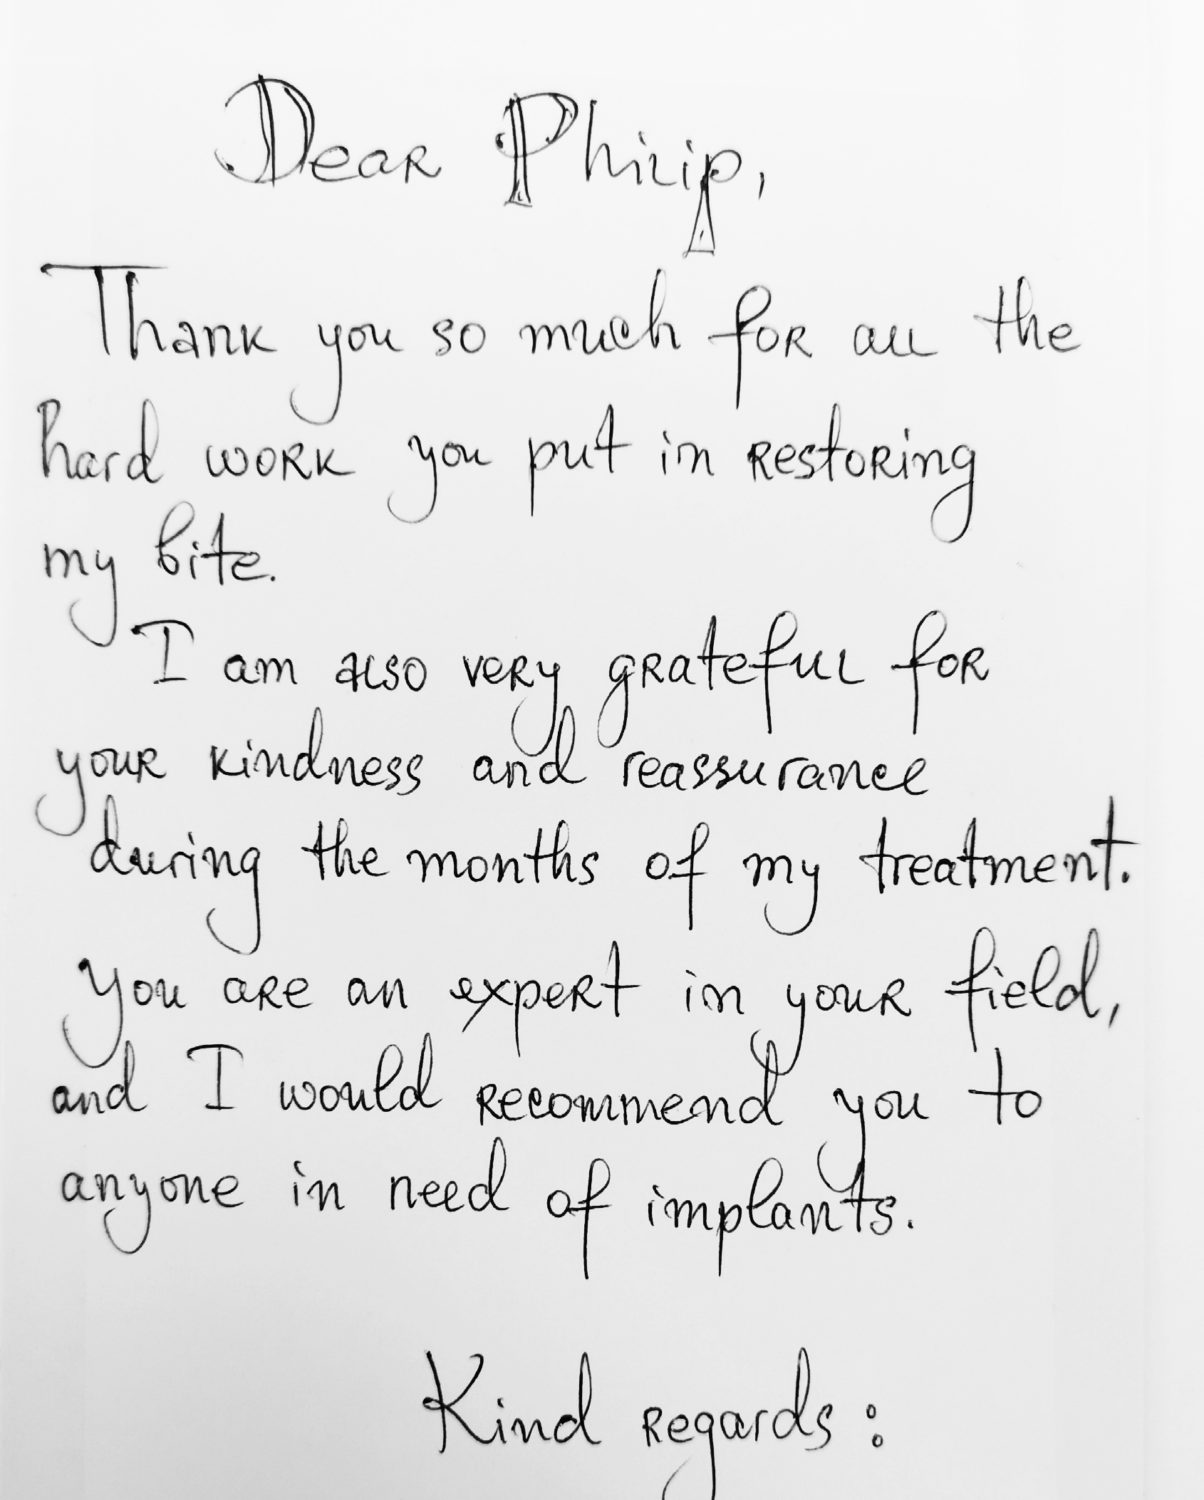 Dear Philip,
Thank you so much for all the
hard work you put in restoring
my bite.
I am also very grateful for
your kindness and reassurance
during the months of my treatment.
You are an expert in your field,
and I would recommend you to
anyone in need of implants.
Kind regards: